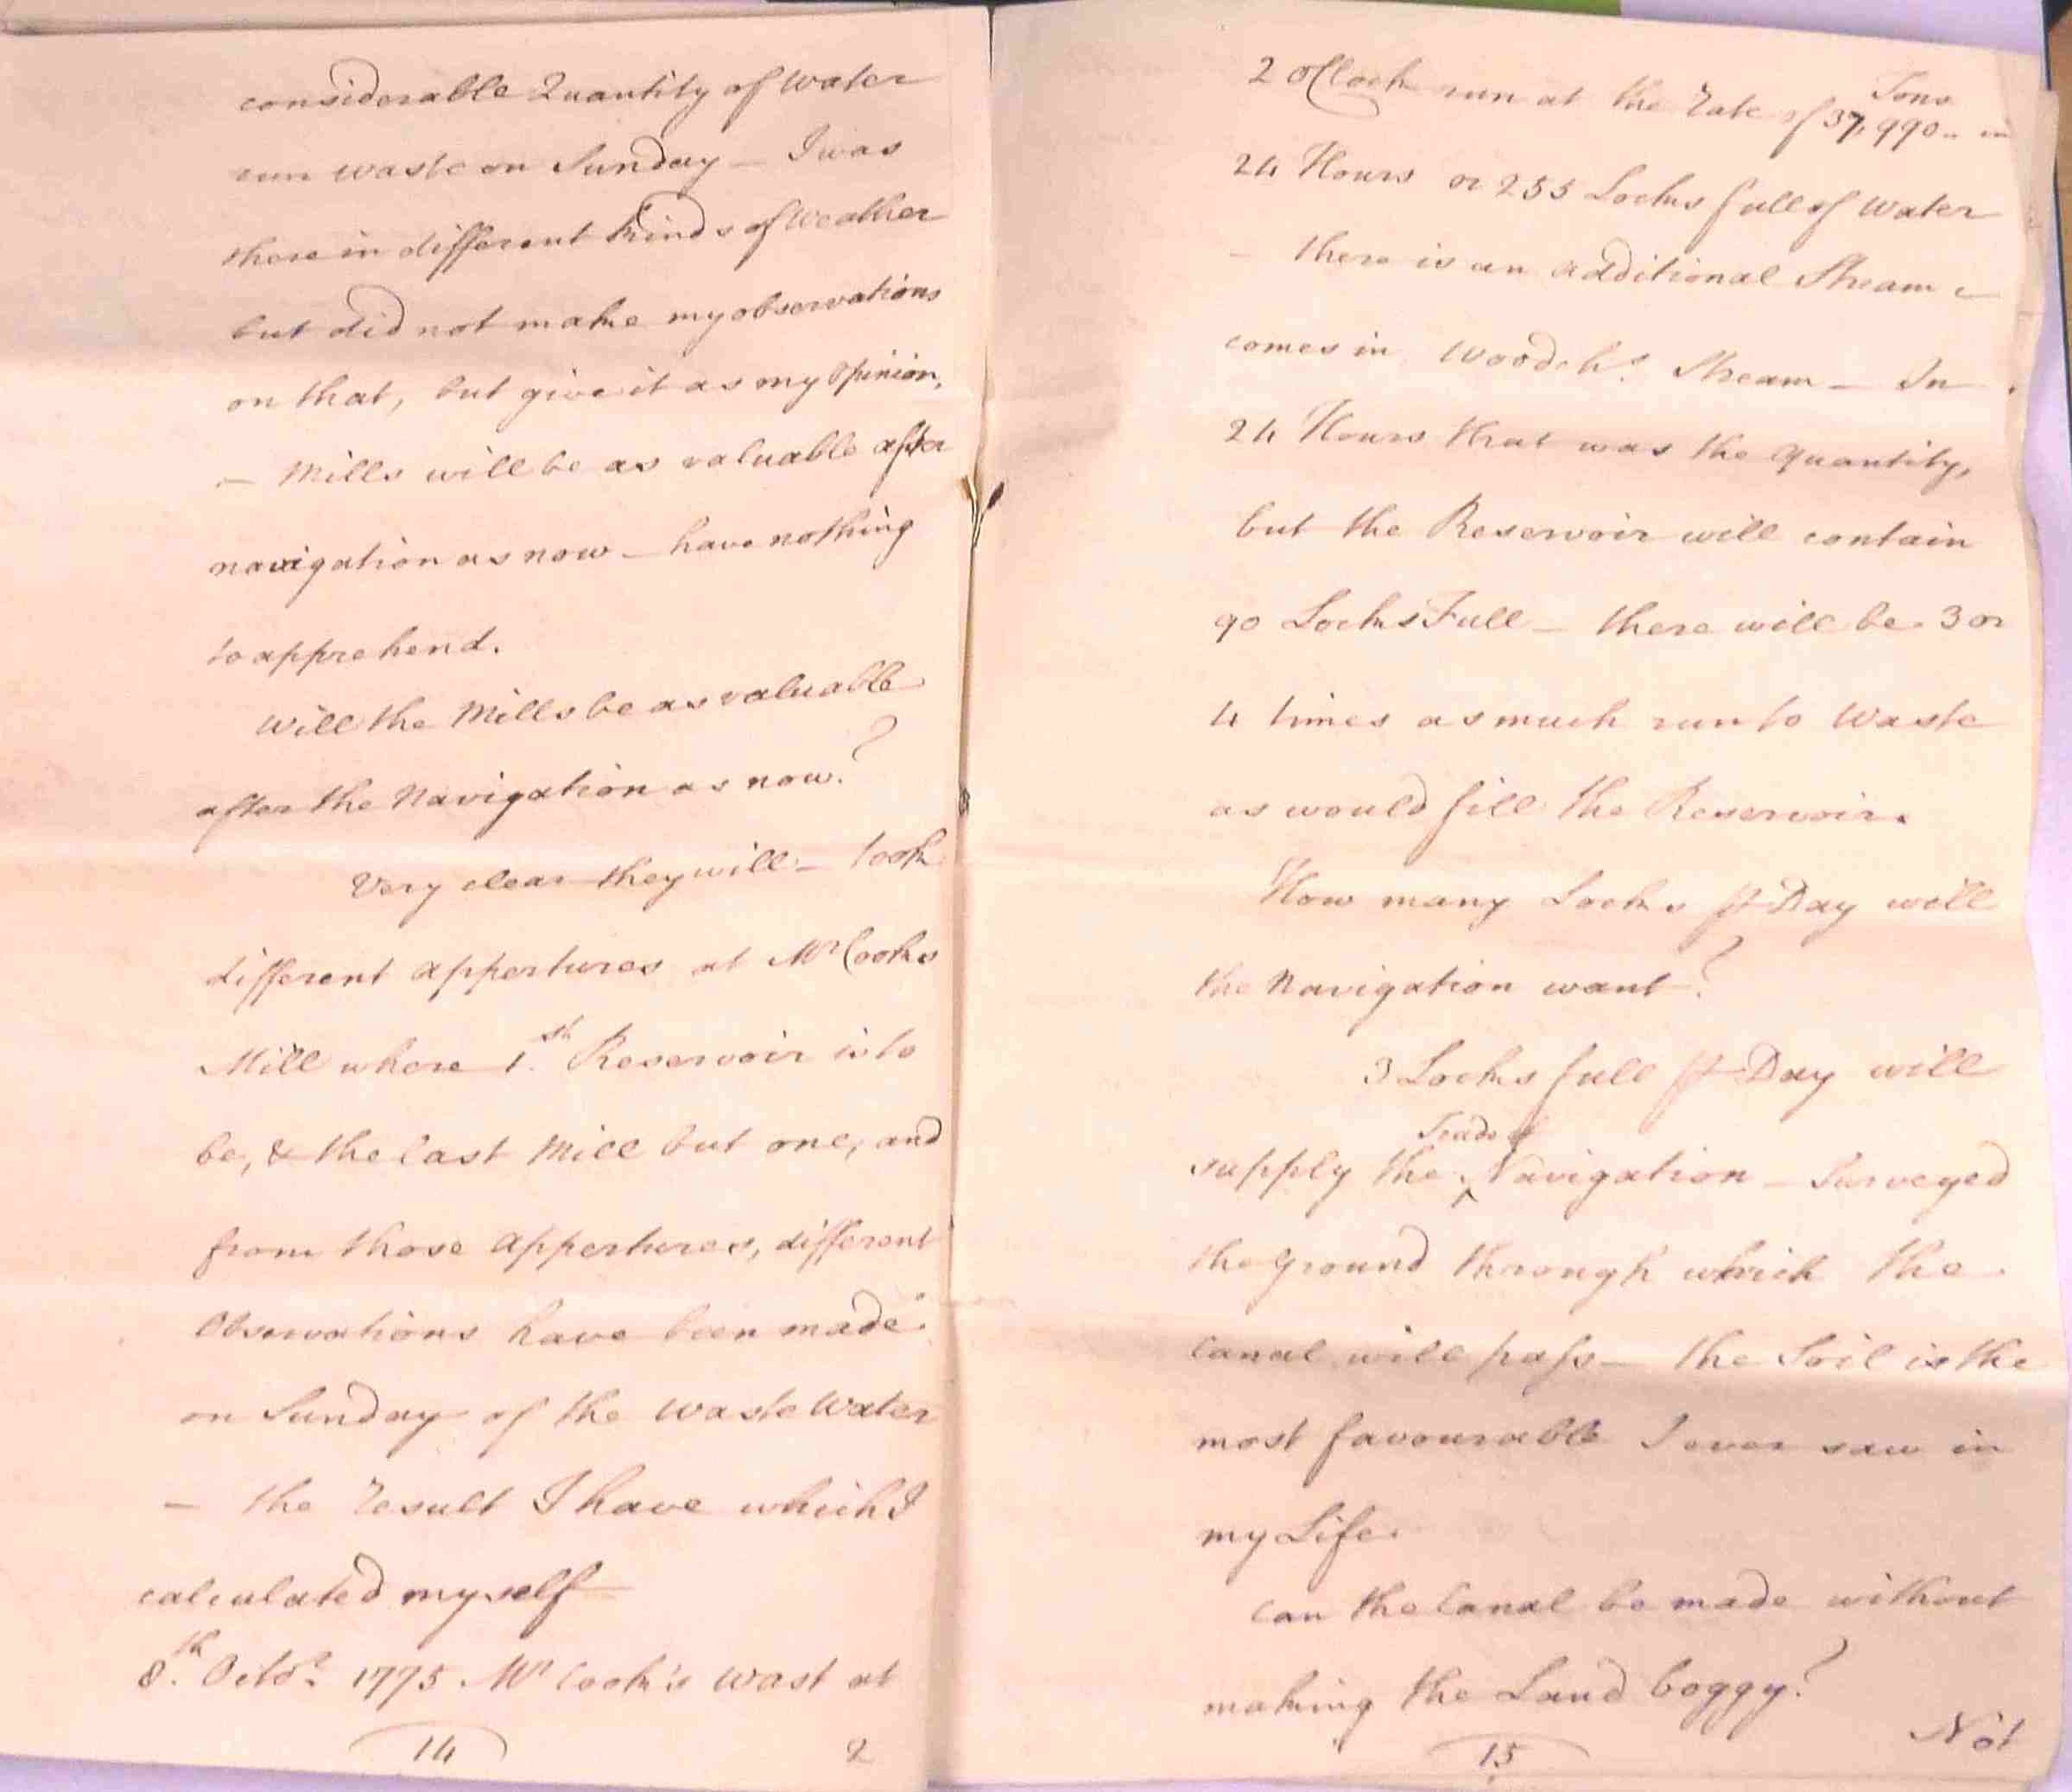 considerable Quantity of Water
run waste on Sunday — I was
there in different kinds of Weather
but did not make my observations
on that, but give it as my opinion,
— Mills will be as valuable after
navigation as now — have nothing
to apprehend.
Will the Mills be as valuable
after the Navigation as now?
Very clear they will — took
different appertures at Mr Cooks
Mill where 1st. Reservoir is to
be, & the last Mill but one, and
from those Appertures, different
Observations have been made
on Sunday of the Waste Water
— the Result I have which I
calculated myself
8th. Octor. 1775 Mr Cook's Wast at
14
2
2 o'Clock run at the Rate of 37,990 Tons in
24 Hours or 255 Locks full of Water
— there is an additional Stream
comes in Stream — In
24 Hours that was the quantity,
but the Reservoir will contain
90 Locks Full — there will be 3 or
4 times as much run to Waste
as would fill the Reservoir.
How many Locks ⅌ Day will
the Navigation want?
3 Locks full ⅌ Day will
supply the Trade of Navigation — Surveyed
the Ground through which the
Canal will pass — the Soil is the
most favourable I ever saw in
my Life.
Can the Canal be made without
making the Land boggy?
Not
15